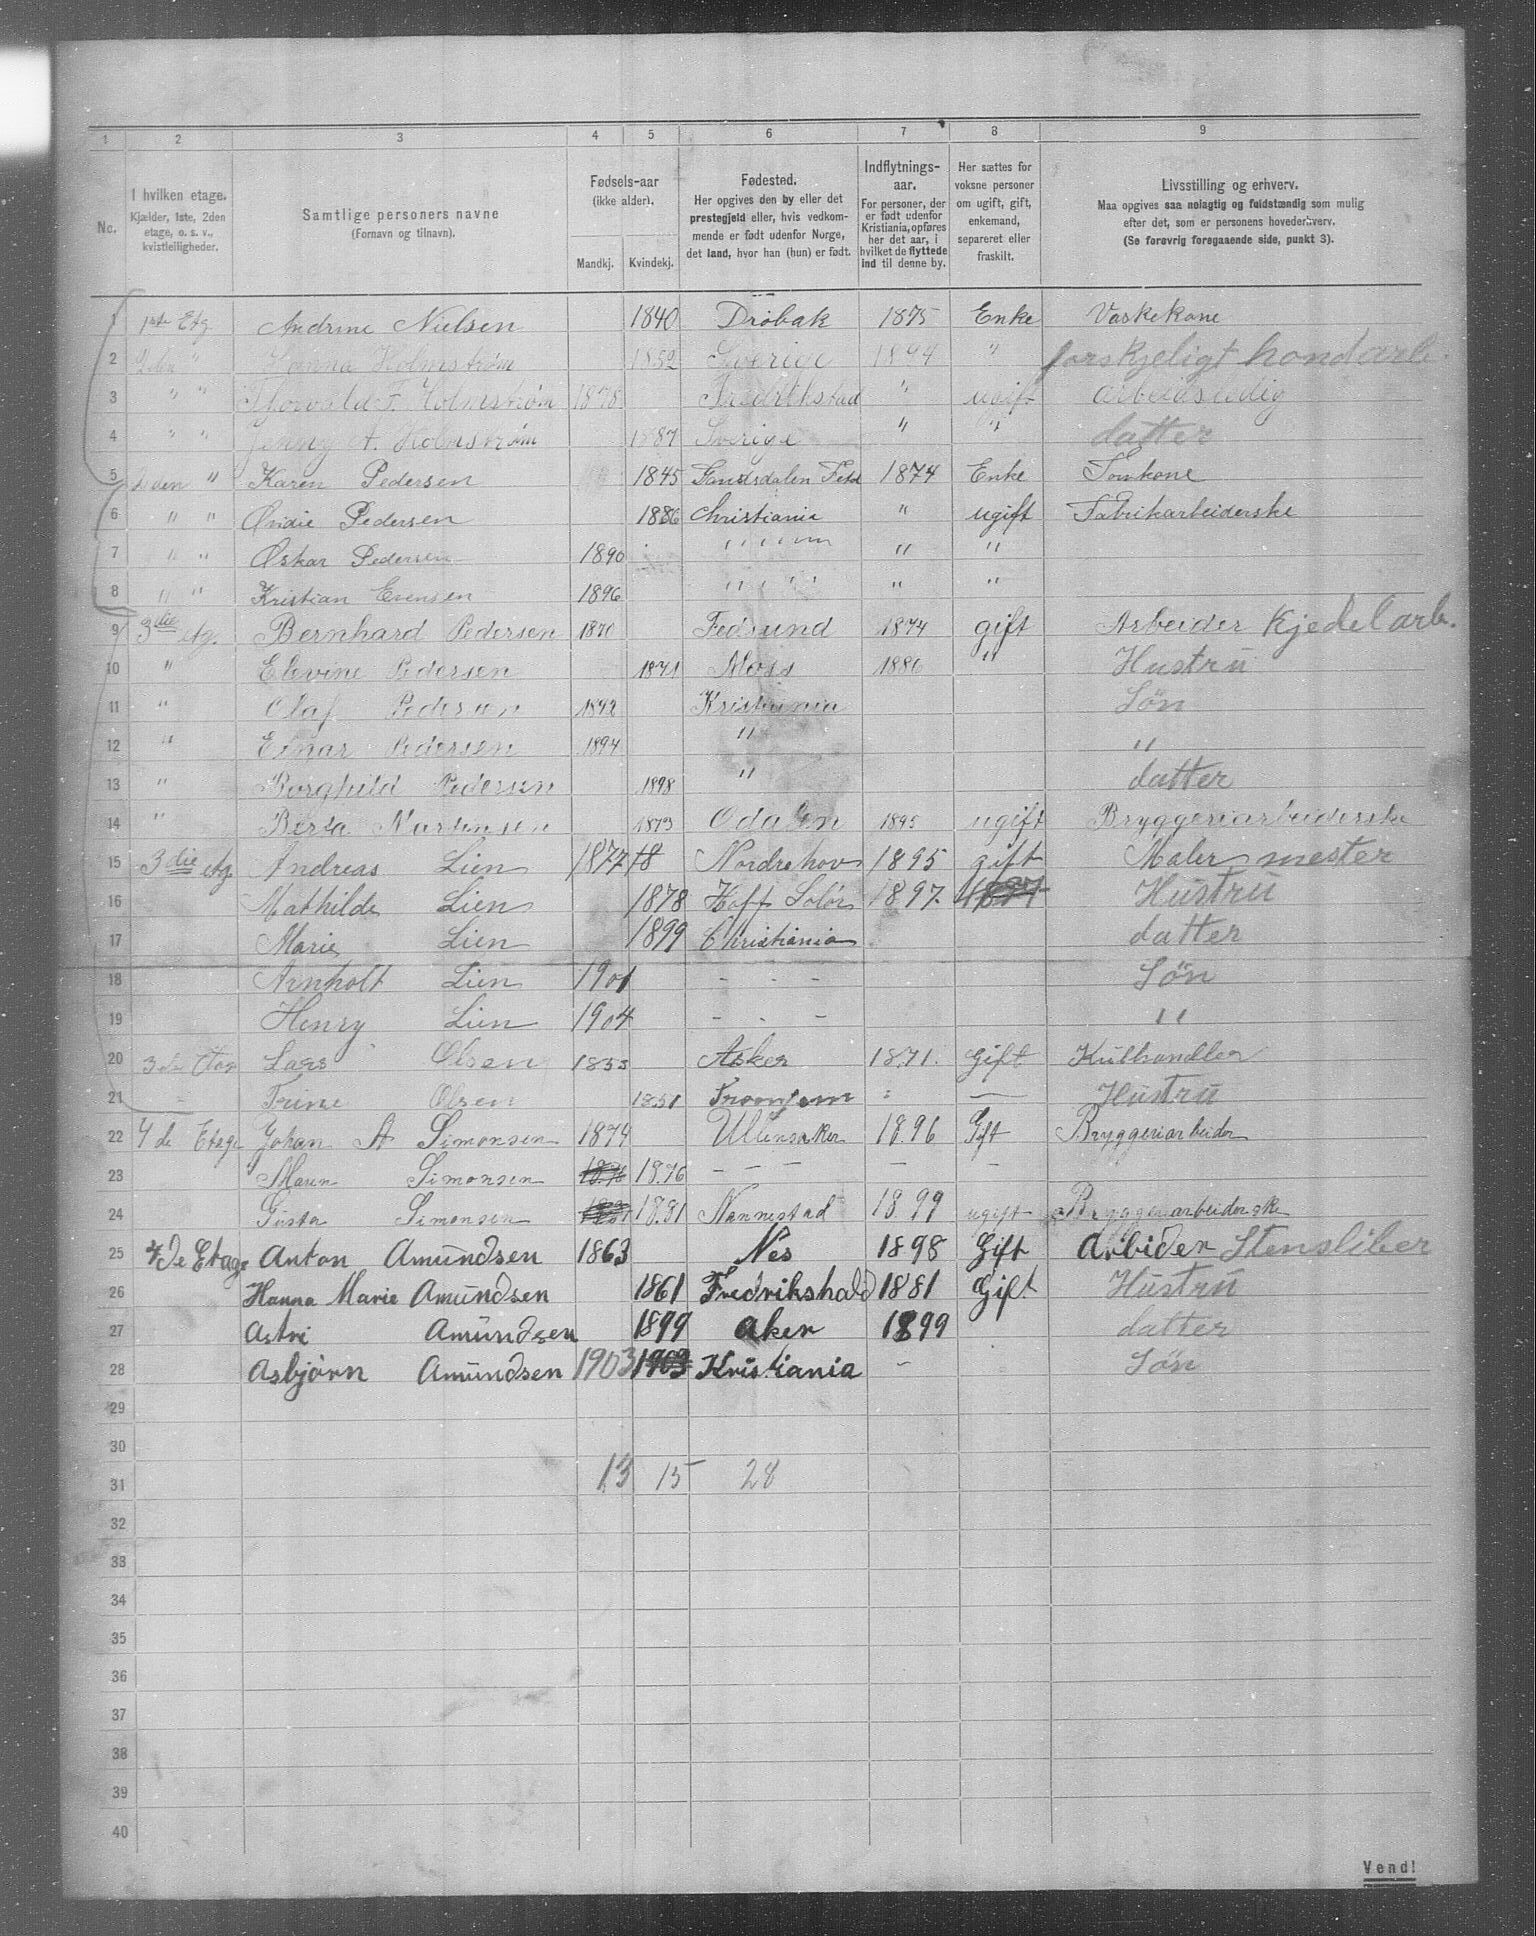 1 2 3 4 5 6 7 8 9
No. I hvilken etage. Kjælder, 1ste, 2den etage, o. s. v., kvistleiligheder. Samtlige personers navne (Fornavn og tilnavn). Fødsels-aar (ikke alder). Mandkj. Kvindekj. Fødested. Her opgives den by eller det prestegjeld eller, hvis vedkommende er født udenfor Norge, det land, hvor han (hun) er født. Indflytnings-aar. For personer, der er født udenfor Kristiania, opføres her det aar, i hvilket de flyttede ind til denne by. Her sættes for voksne personer om ugift, gift, enkemand, separeret eller fraskilt. Livsstilling og erhverv. Maa opgives saa nøiagtig og fuldstændig som mulig efter det, som er personens hovederhverv. (Se forøvrig foregaaende side, punkt 3).
1 1ste Etg Andrine Nielsen 1840 Drøbak 1875 Enke Vaskekone
2 2den " Hanna Holmstrøm 1852 Sverige 1894 " forskjeligt handarb.
3 " " Thorvald F. Holmstrøm 1878 Fredrikstad " ugift arbeidsledig
4 " " Jenny A. Holmstrøm 1887 Sverige " " datter
5 2den " Karen Pedersen 1845 1874 Enke
6 " " Pedersen 1886 Christiania " ugift Fabrikarbeiderske
7 " " Oskar Pedersen 1890 " " " " " "
8 " " Kristian Evensen 1896 " " " " " "
9 3die etg. Bernhard Pedersen 1870 Fedsund 1874 gift Arbeider Kjedelarb.
10 " Elevine Pedersen 1871 Moss 1886 " Hustru
11 " Olaf Pedersen 1892 Kristiania Søn
12 " Einar Pedersen 1894 " "
13 " Borghild Pedersen 1898 " datter
14 " Berta Martinsen 1873 Odalen 1895 ugift Bryggeriarbeiderske
15 3die etg. Andreas Lien 1877 18 Nordrehov 1895 gift Maler mester
16 Mathilde Lien 1878 Hoff Solør 1897. 1897 Hustru
17 Marie Lien 1899 Christiania datter
18 Arnholt Lien 1901 - - - Søn
19 Henry Lien 1904 - - - "
20 3die Etag Lars Olsen 1853 Asker 1871. Gift Kulhandler
21 " Trine Olsen 1851 " — Hustru
22 4de Etage Johan A Simonsen 1874 Ullensaker 18.96 Gift Bryggeriarbeider
23 Maren Simonsen 18.76 18.76 - - - - -
24 Gusta Simonsen 18.81 Nannestad 18.99 ugift Bryggeriarbeiderske
25 4de Etage Anton Amundsen 1863 Nes 1898 Gift Arbider Stensliber
26 Hanna Marie Amundsen 1861 Fredrikshald 1881 Gift Hustru
27 Astri Amundsen 1899 Aker 1899 datter
28 Asbjørn Amundsen 1903 1903 Kristiania - Søn
29
30
31 13 15 28
32
33
34
35
36
37
38
39
40
Vend!